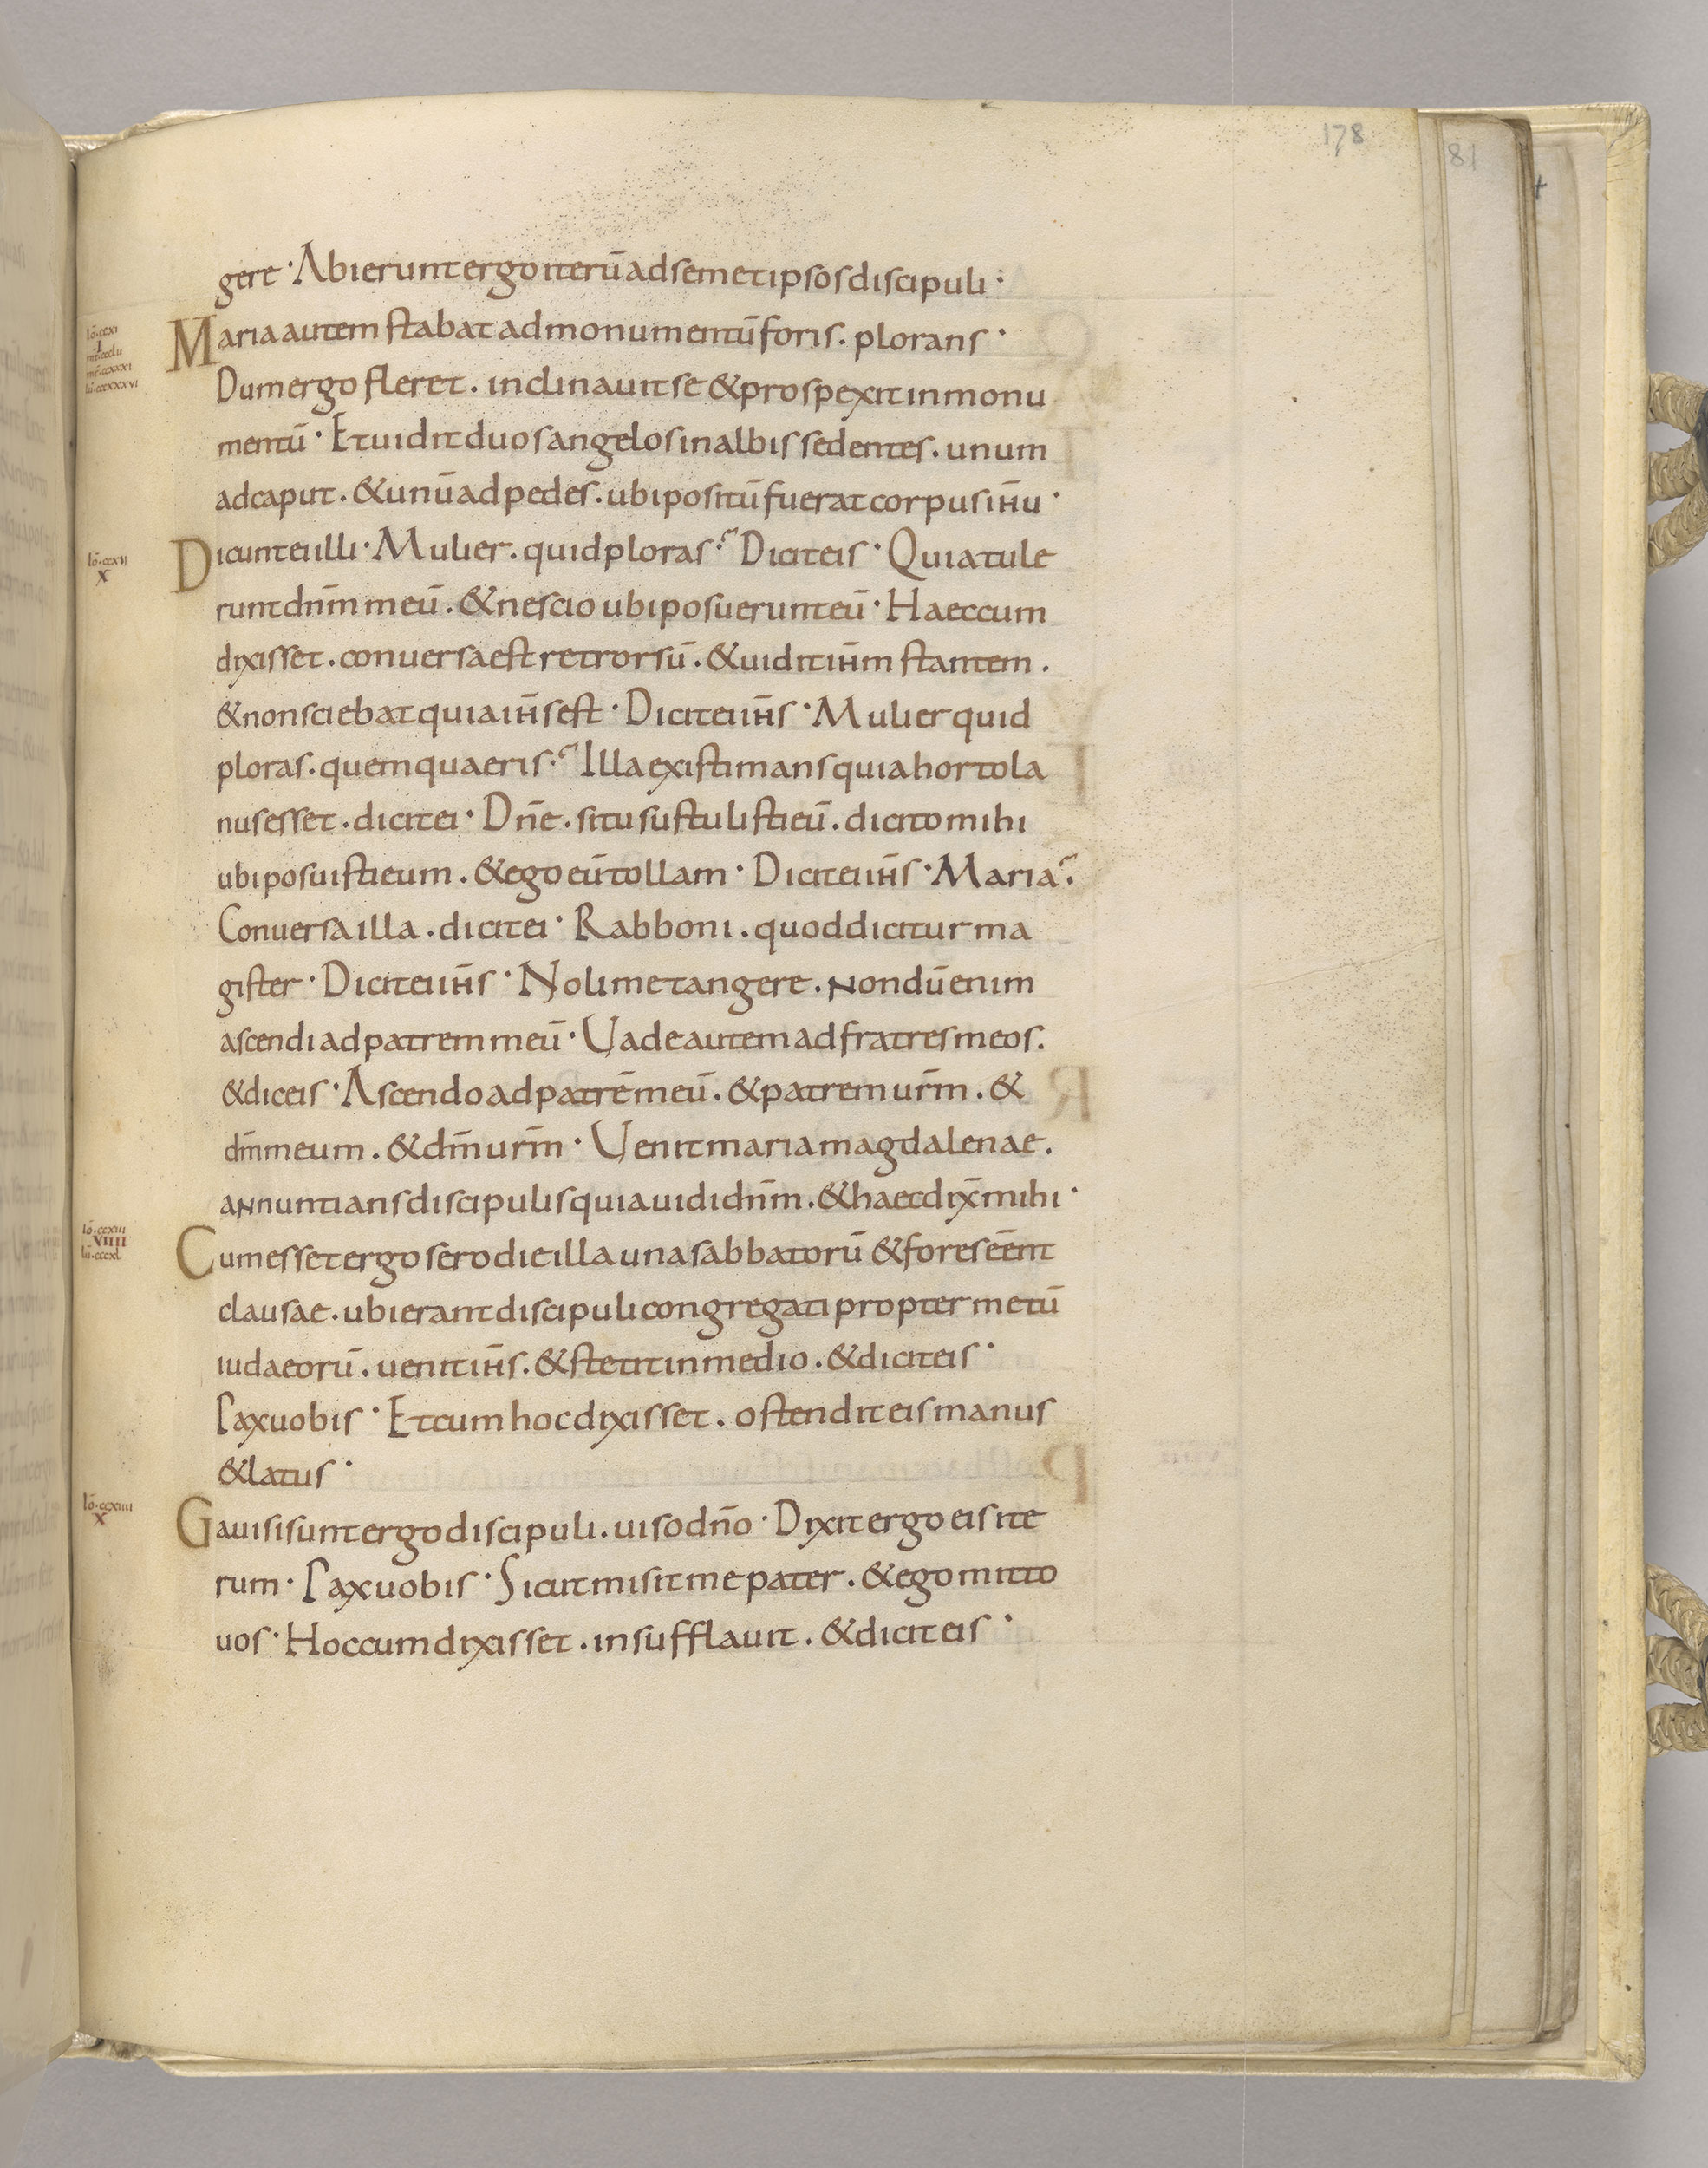 178
81
gere · Abierunt ergo iterū ad semet ipsos discipuli ·
Maria autem stabat ad monumentū foris . plorans ·
Dum ergo fleret . inclinauit se & prospexit in monu
mentū · Et uidit duos angelos in albis sedentes . unum
ad caput . & unū ad pedes . ubi positū fuerat corpus ih̄u ·
lō · ccxii
X
Dicunt ei illi · Mulier . quid ploras ? Dicit eis · Quia tule
runt dn̄m meū . & nescio ubi posuerunt eū · Haec cum
dixisset . conuersa est retrorsū . & uidit ih̄m stantem .
& non sciebat quia ih̄s est · Dicit ei ih̄s · Mulier quid
ploras . quem quaeris ? Illa existimans quia hortola
nus esset . dicit ei · Dn̄e . si tu sustulisti eū . dicito mihi
ubi posuisti eum . & ego eū tollam · Dicit ei ih̄s · Maria ?
Conuersa illa . dicit ei · Rabboni . quod dicitur ma
gister · Dicit ei ih̄s · Noli me tangere . nondū enim
ascendi ad patrem meū · Uade autem ad fratres meos .
& dic eis · Ascendo ad patrē meū . & patrem ur̄m . &
dm̄ meum . & dm̄ ur̄m · Uenit maria magdalenae .
annuntians discipulis quia uidi dn̄m . & haec dix̄ mihi ·
lō · ccxiii
VIIII
lū · cccxl
Cum esset ergo sero die illa una sabbatorū & fores eēnt
clausae . ubi erant discipuli congregati propter metū
iudaeorū . uenit ih̄s . & stetit in medio . & dicit eis ·
Pax uobis · Et cum hoc dixisset . ostendit eis manus
& latus ·
lō · ccxiiii
X
Gauisi sunt ergo discipuli . uiso dn̄o · Dixit ergo eis ite
rum · Pax uobis · Sicut misit me pater . & ego mitto
uos · Hoc cum dixisset . insufflauit . & dicit eis ·